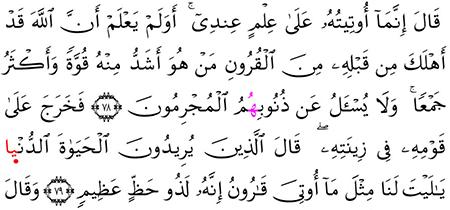 قَالَ إِنَّمَآ أُوتِيتُهُۥ عَلَىٰ عِلْمٍ عِندِىٓ ۚ أَوَلَمْ يَعْلَمْ أَنَّ ٱللَّهَ قَدْ
أَهْلَكَ مِن قَبْلِهِۦ مِنَ ٱلْقُرُونِ مَنْ هُوَ أَشَدُّ مِنْهُ قُوَّةً وَأَكْثَرُ
جَمْعًا ۚ وَلَا يُسْـَٔلُ عَن ذُنُوبِهِمُ ٱلْمُجْرِمُونَ ﴿٧٨﴾ فَخَرَجَ عَلَىٰ
قَوْمِهِۦ فِى زِينَتِهِۦ ۖ قَالَ ٱلَّذِينَ يُرِيدُونَ ٱلْحَيَوٰةَ ٱلدُّنْيَا
يَـٰلَيْتَ لَنَا مِثْلَ مَآ أُوتِىَ قَـٰرُونُ إِنَّهُۥ لَذُو حَظٍّ عَظِيمٍ ﴿٧٩﴾ وَقَالَ